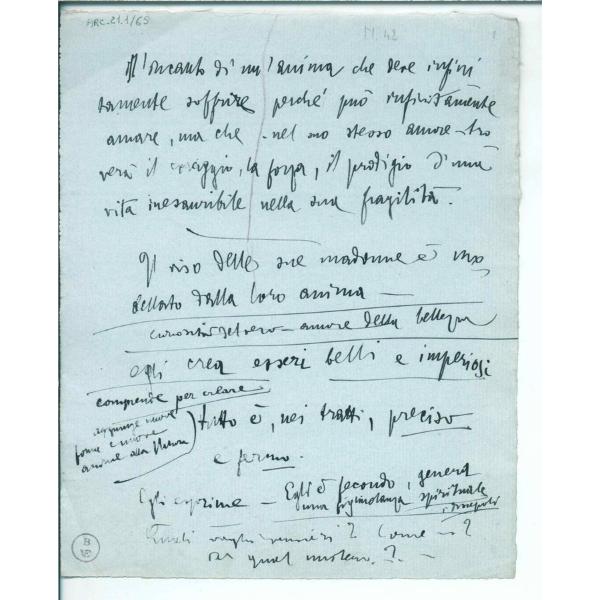 ARC.21.1/65
M. 42
L'incanto di un'anima che deve infini
tamente soffrire perché può infinitamente
amare, ma che nel suo stesso amore tro
verà il coraggio, la forza, il prodigio d'una
vita inesauribile nella sua fragilità.
Il viso delle sue madonne è mo
dellato dalla loro anima —
curiosità del vero — amore della bellezza
egli crea esseri belli e imperiosi
comprende per creare
aggiunge nuove
forme e nuove
anime alla
tutto è, nei tratti, preciso
e fermo.
Egli esprime — Egli è secondo, genera
una spirituale
Quali ? Come ?
Da qual ?